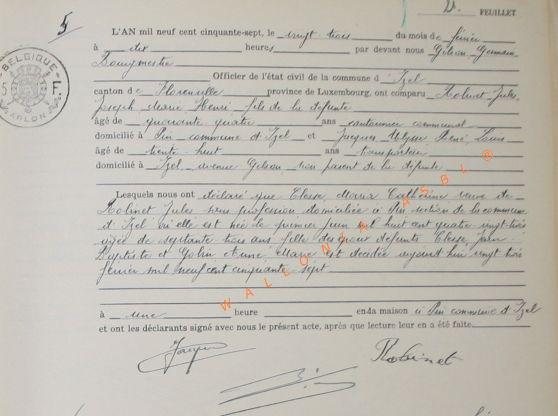 5
FEUILLET
L'AN mil neuf cent cinquante-sept, le vingt trois du mois de février
à dix heures par devant nous Gilson Germain
Bourgmestre
Officier de l'état civil de la commune d Izel
canton de Florenville province de Luxembourg, ont comparu Robinet Jules
Joseph Marie Henri fils de la défunte
âgé de quarante quatre ans cantonnier communal
domicilié à Pin commune d Izel et Jacques René Louis
âgé de trente-huit ans
domicilié à Izel, avenue Gilson non parent de la défunte
Lesquels nous ont déclaré que Elesse, Maria Catherine veuve de
Robinet Jules sans profession domiciliée à Pin section de la commune
d Izel où elle est née le premier juin mil huit cent quatre vingt-trois
âgée de septante trois ans fille des époux défunts Elesse, Jean
Baptiste et Gobin Marie est décédée aujourd'hui vingt trois
février mil neuf cent cinquante-sept
à une heure en da maison à Pin commune d Izel
et ont les déclarants signé avec nous le présent acte, après que lecture leur en a été faite
Robinet
BELGIQUE
ARLON
WALLONIA ASBL ®